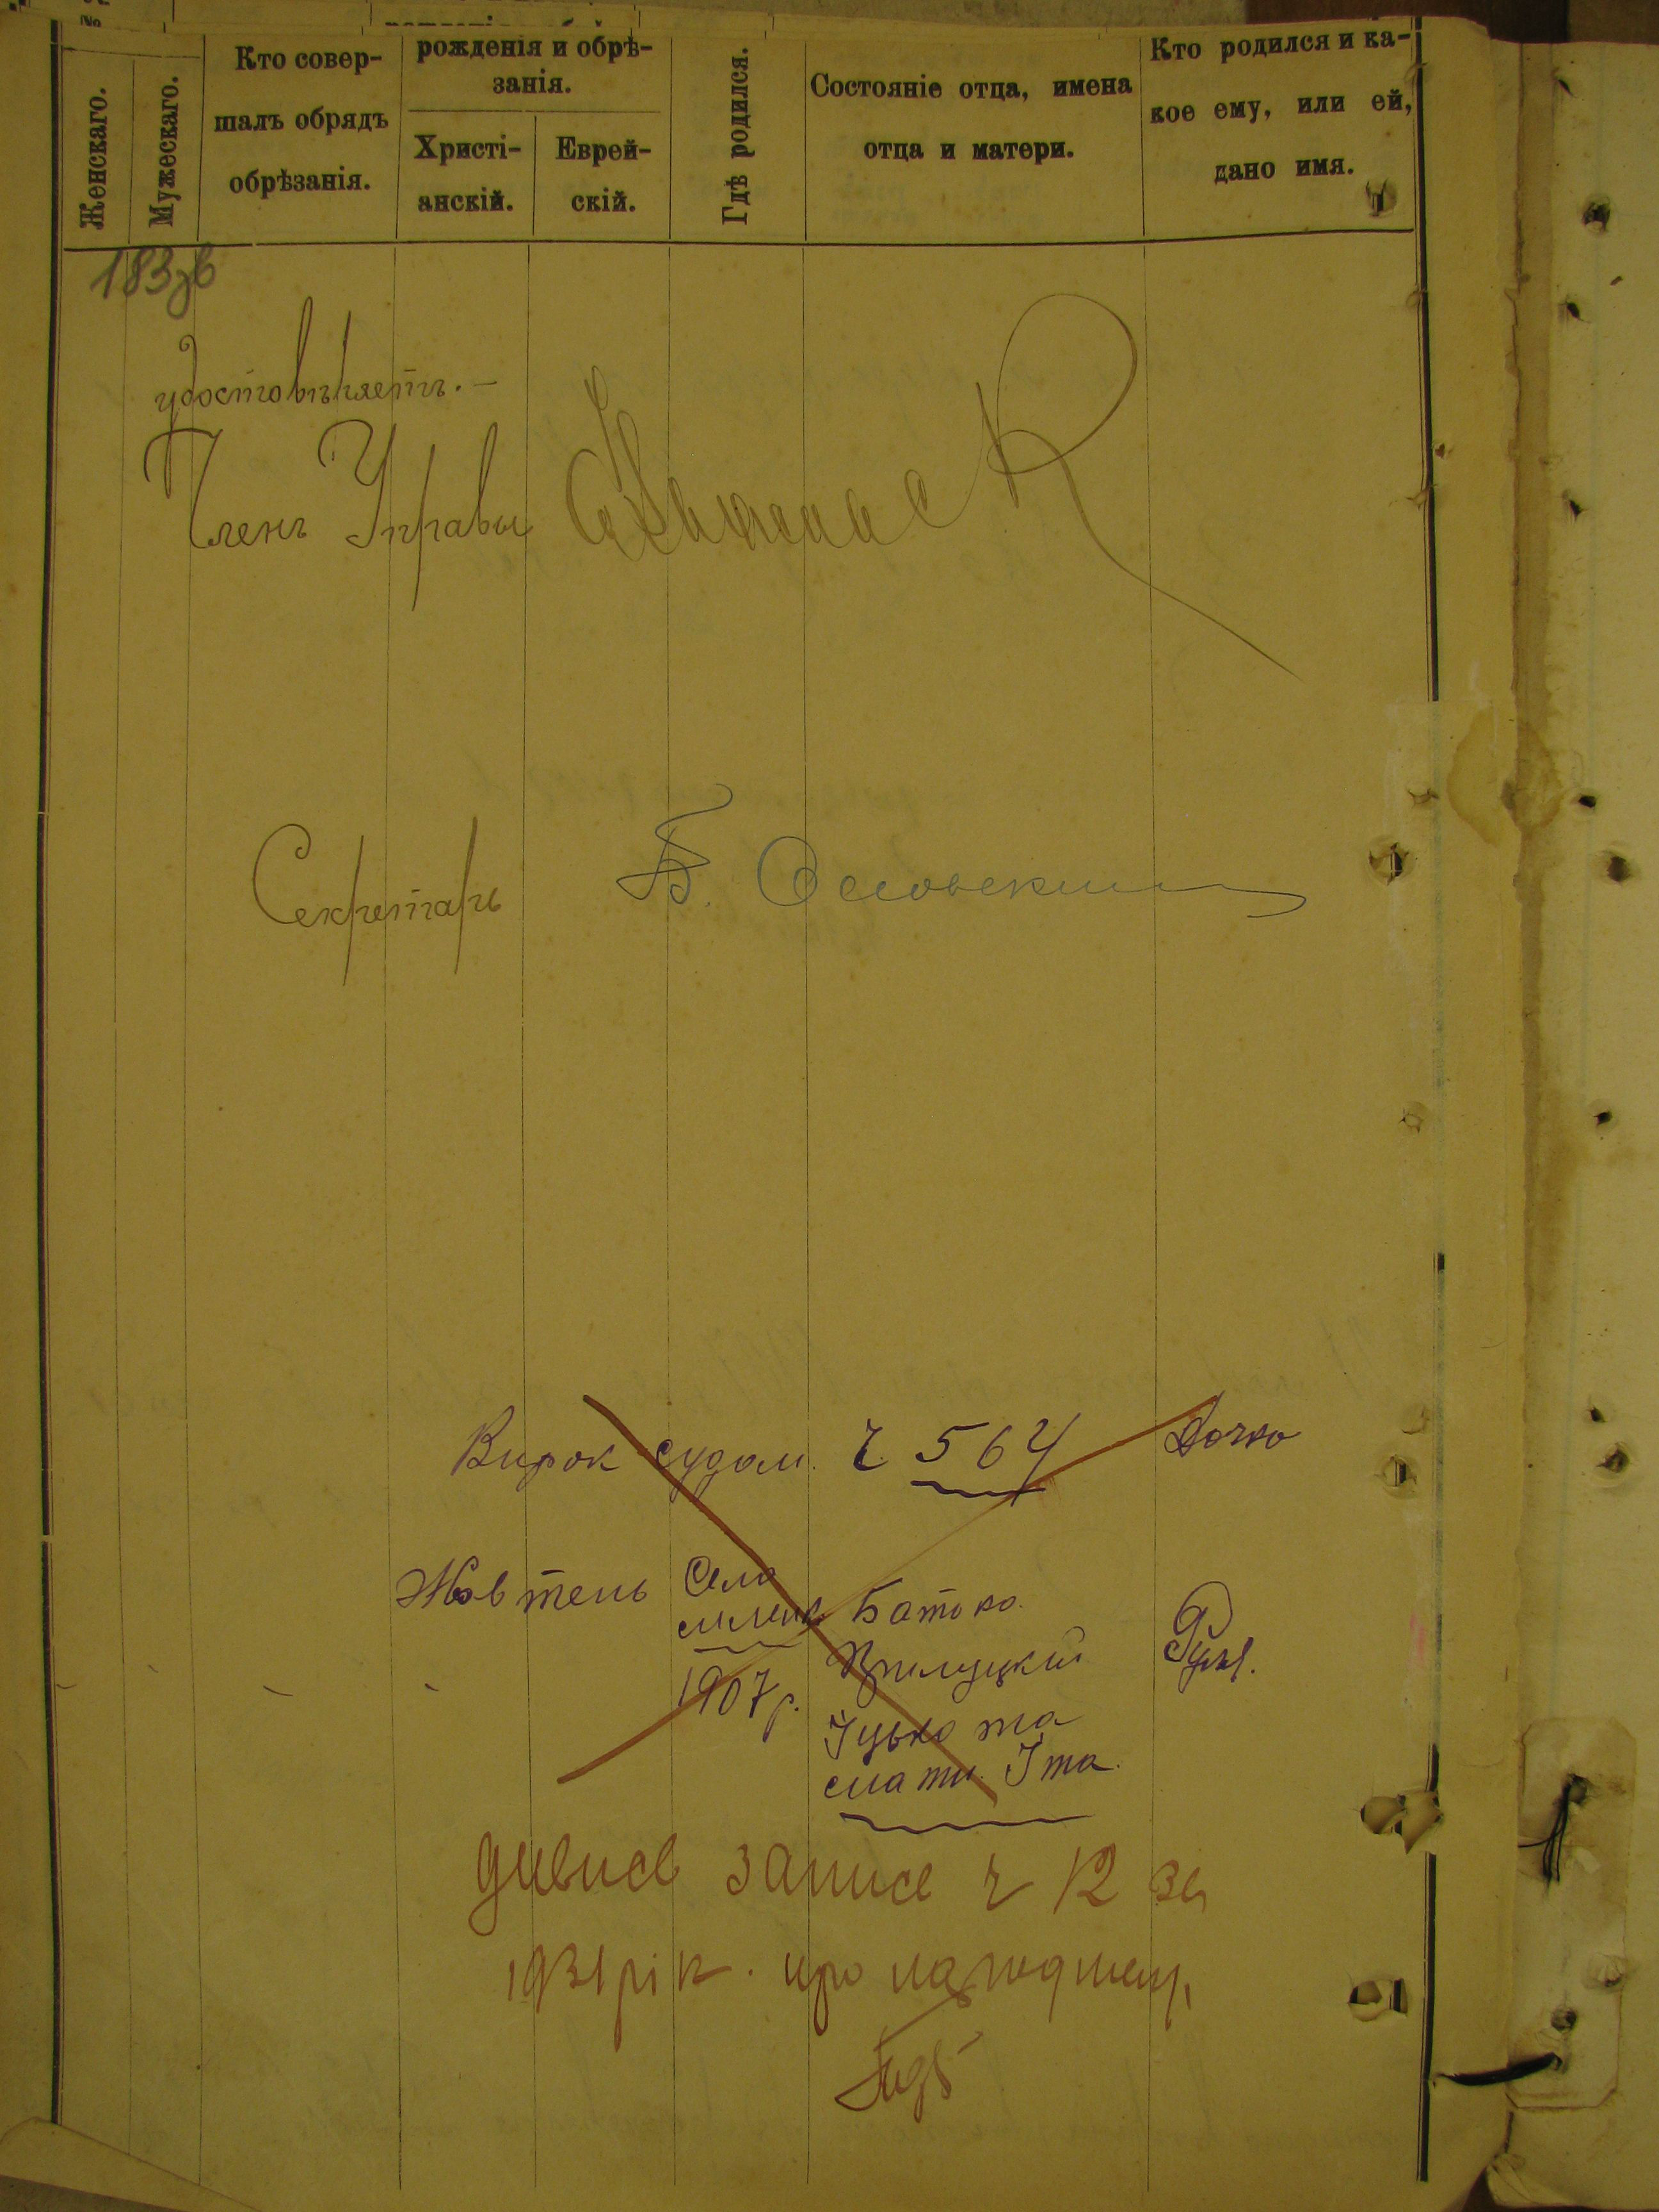 Женскаго.
Мужескаго.
Кто совер-
шалъ обрядъ
обрѣзанія.
рожденія и обрѣ-
занія.
Христі-
анскій.
Еврей-
скій.
Гдѣ родился.
Состояніе отца, имена
отца и матери.
Кто родился и ка-
кое ему, или ей,
дано имя.
183зв
удостовѣряетъ. –
Членъ Управы
Секретарь
Б.
Вирок судом. Ч. 564 Дочка
Жовтень
Село
1907 р.
Батько
Прилуцкий
Іцько та
мати Іта.
дивись запись ч 12 за
1931 рік. про народжен.